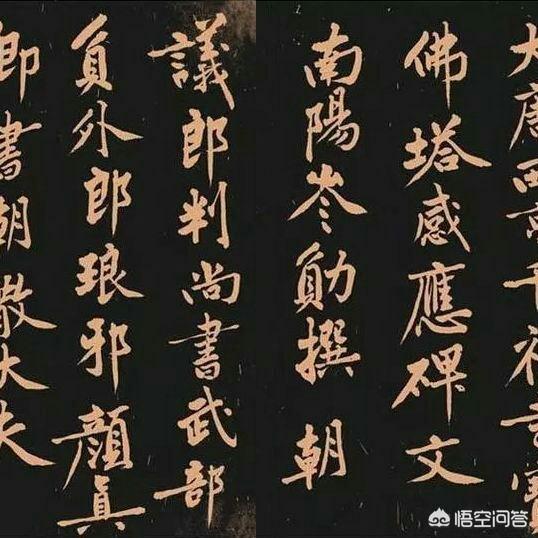 大唐西京千福寺寶
佛塔感應碑文
南陽岑勛撰 朝
議郎判尚書武部
員外郎琅邪顏真
卿書朝散大夫
悟空问答